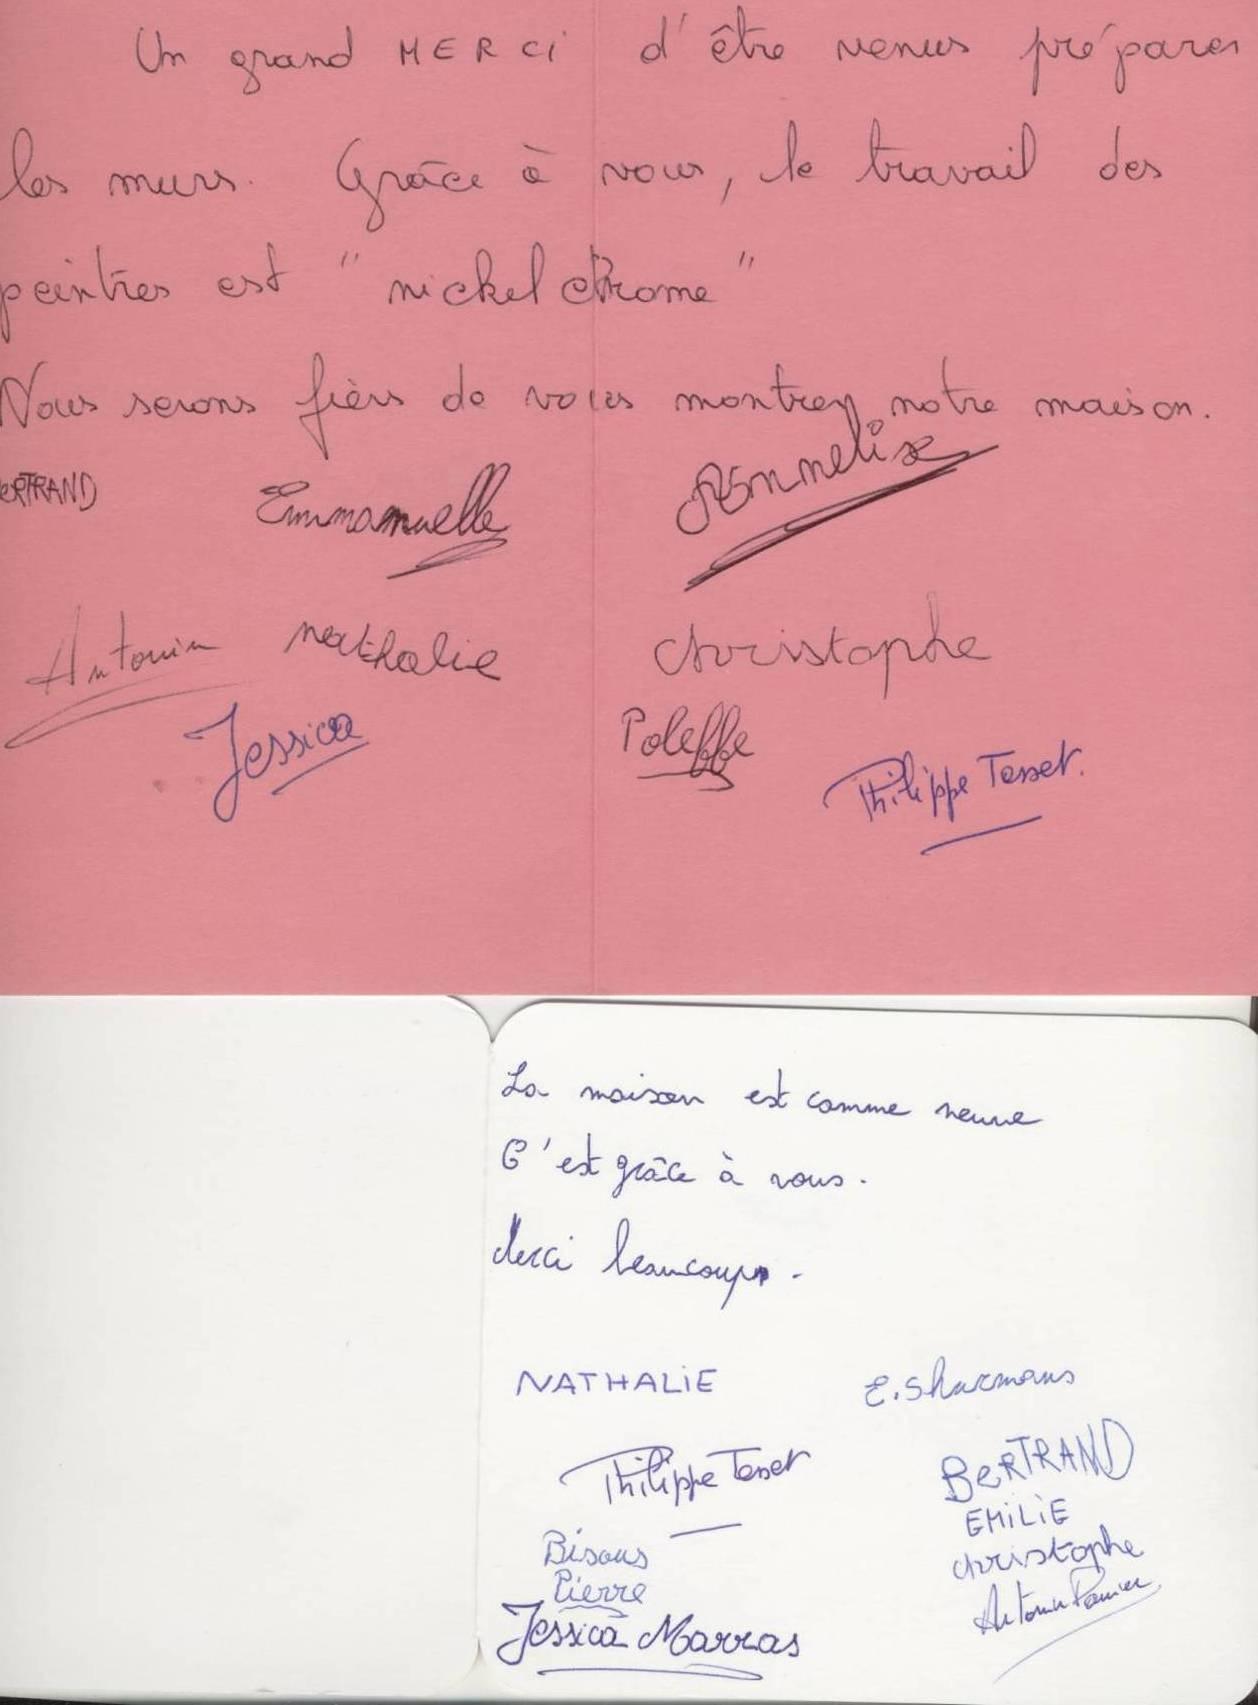 Un grand MERCi d'être venus préparer
les murs. Grâce à vous, le travail des
peintres est "nickel chrome"
Nous serons fiers de vous montrer notre maison.
BeRTRAND Emmanuelle
Antonin Nathalie Christophe
Jessica Philippe Tesset.
La maison est comme neuve
C'est grâce à vous.
Merci beaucoup.
NATHALiE
Philippe Tesset BeRTRAND
EMiLiE
Bisous Christophe
Pierre Antonin
Jessica Marras